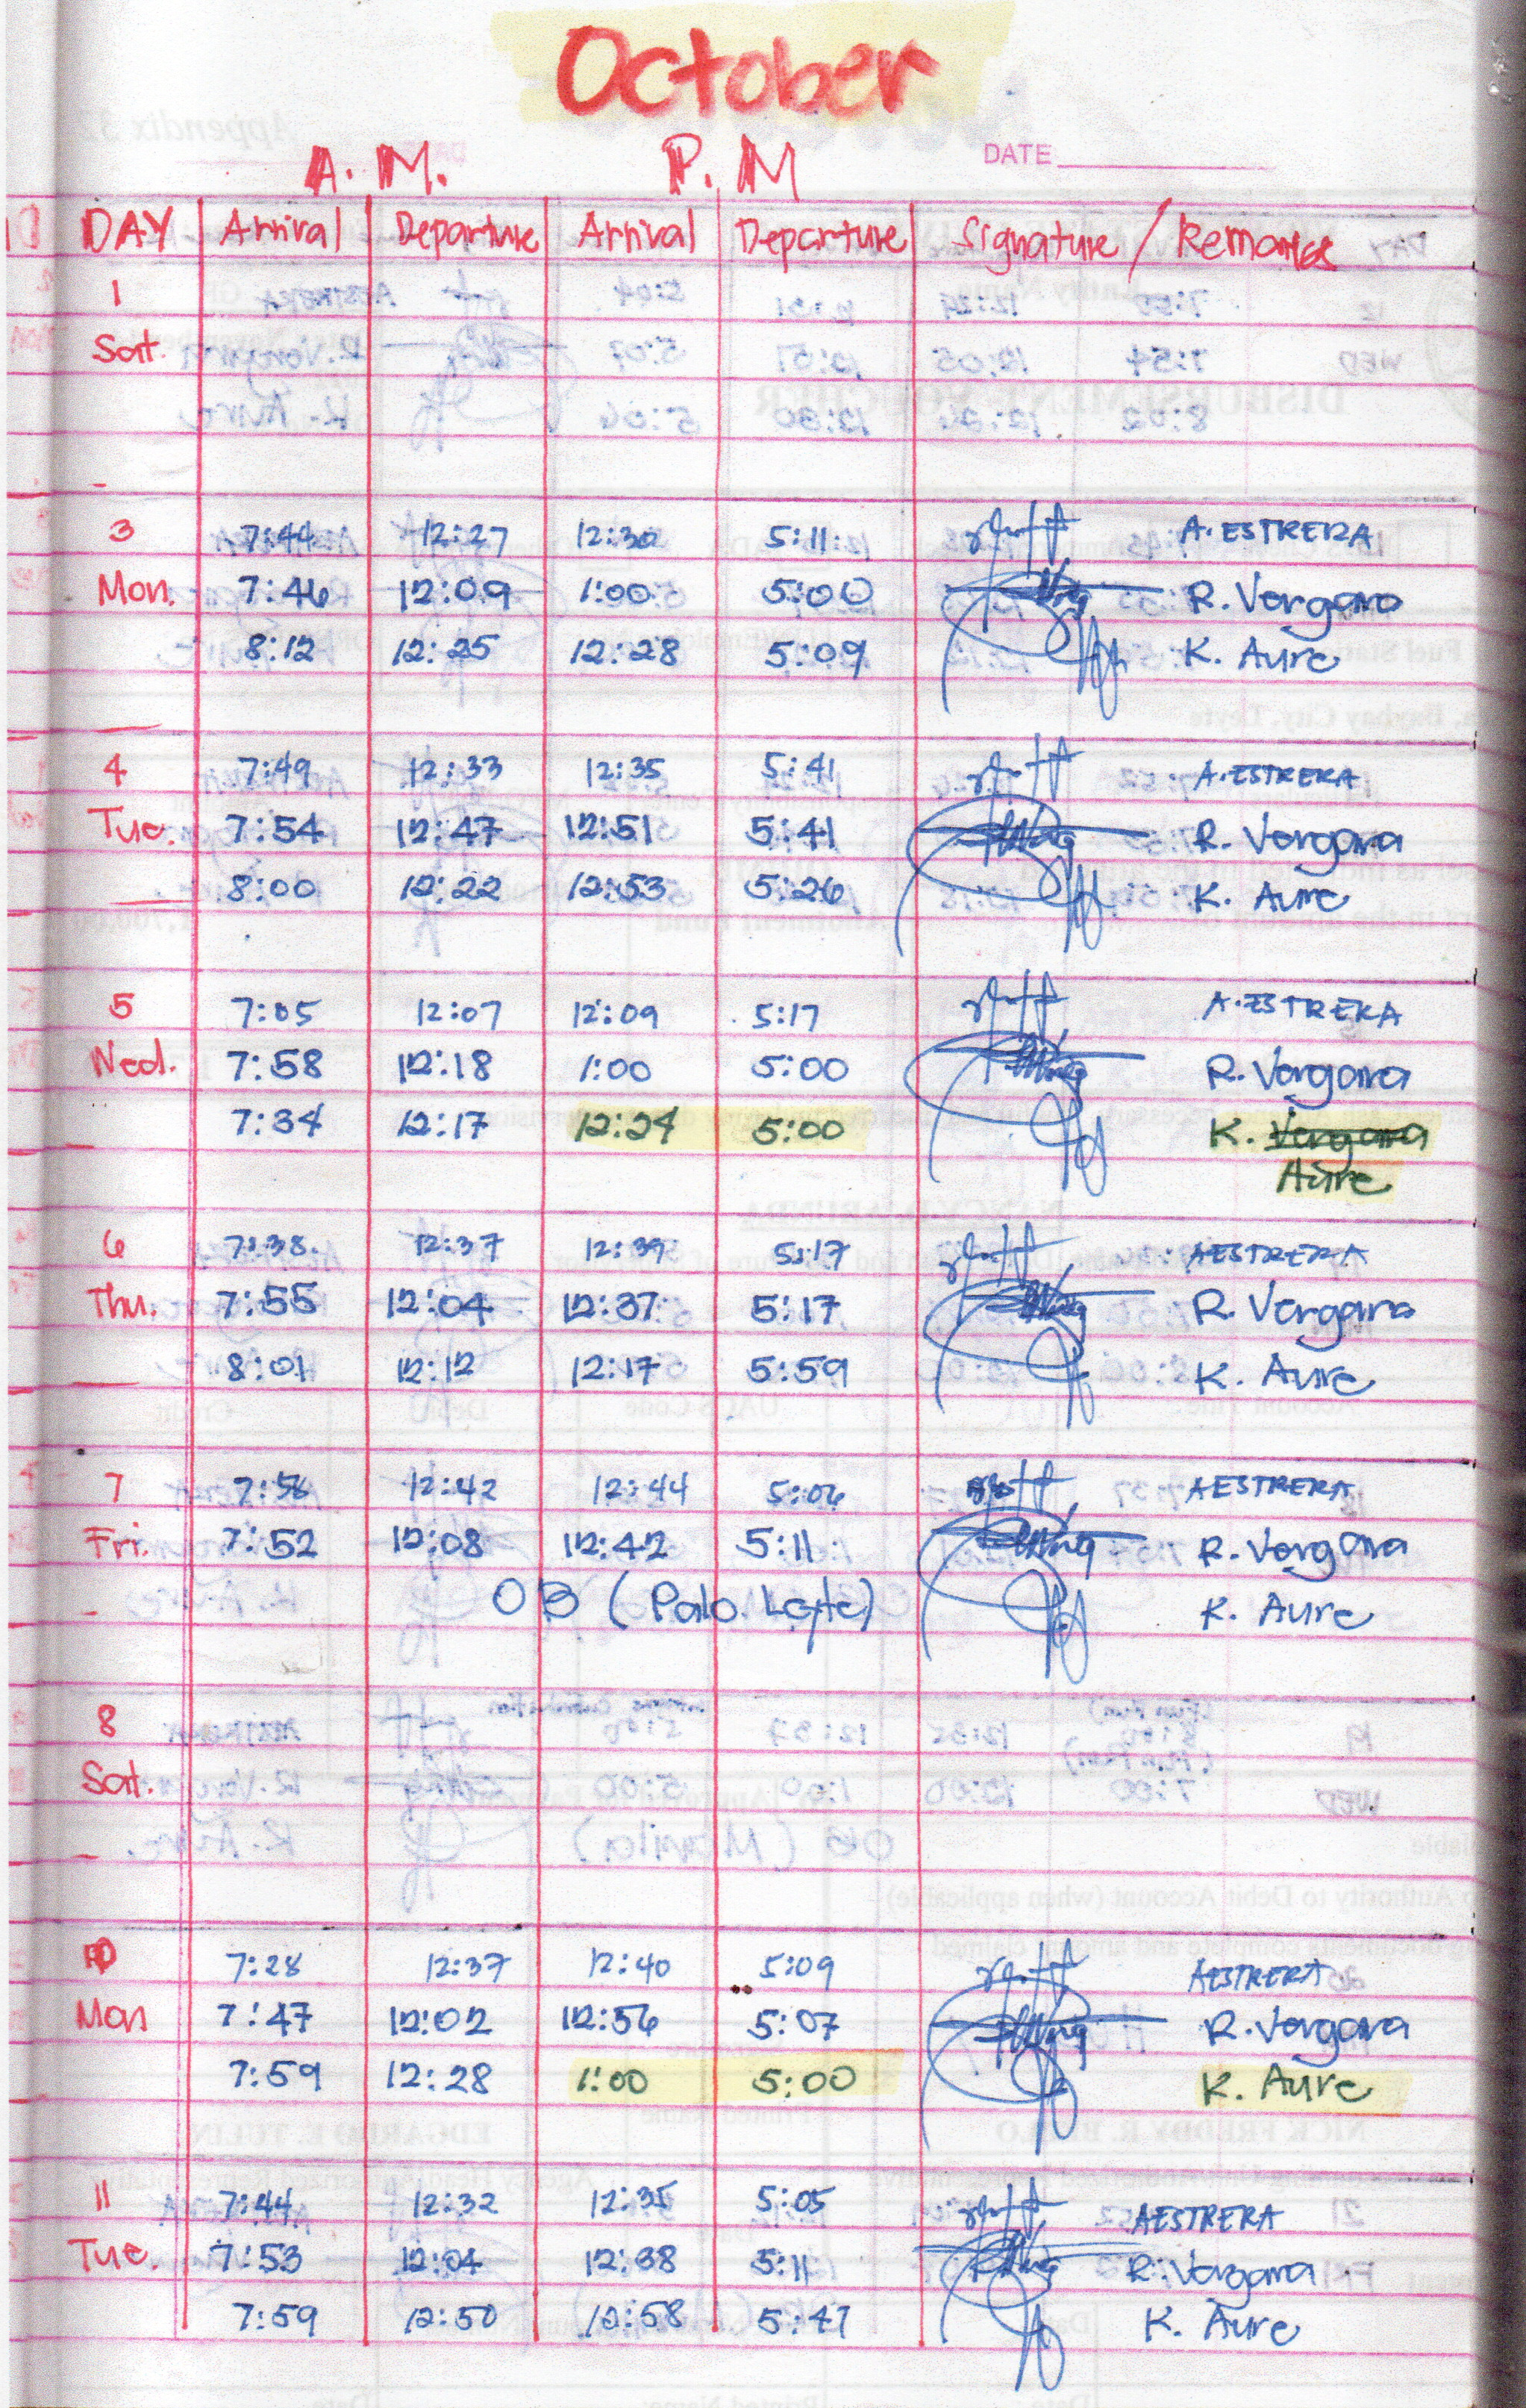 October
A.M. P.M
DATE
DAY Arrival Departure Arrival Departure Signature / Remarks
1
Sat.
3 7:44 12:27 12:30 5:11 A. ESTRERA
Mon. 7:46 12:09 1:00 5:00 R. Vergara
8:12 12:25 12:28 5:09 K. Aure
4 7:49 12:33 12:35 5:41 A. ESTRERA
Tue. 7:54 12:47 12:51 5:41 R. Vergara
8:00 12:22 12:53 5:26 K. Aure
5 7:05 12:07 12:09 5:17 A. ESTRERA
Wed. 7:58 12:18 1:00 5:00 R. Vergara
7:34 12:17 12:24 5:00 K. Vergara
Aure
6 7:38 12:37 12:39 5:17 AESTRERA
Thu. 7:55 12:04 12:37 5:17 R. Vergara
8:01 12:12 12:17 5:59 K. Aure
7 7:58 12:42 12:44 5:06 AESTRERA
Fri. 7:52 12:08 12:42 5:11 R. Vergara
OB (Palo. Leyte) K. Aure
8
Sat.
10 7:28 12:37 12:40 5:09 AESTRERA
Mon 7:47 12:02 12:56 5:07 R. Vergara
7:59 12:28 1:00 5:00 K. Aure
11 7:44 12:32 12:35 5:05 AESTRERA
Tue. 7:53 12:04 12:38 5:11 R. Vergara
7:59 12:50 12:58 5:47 K. Aure